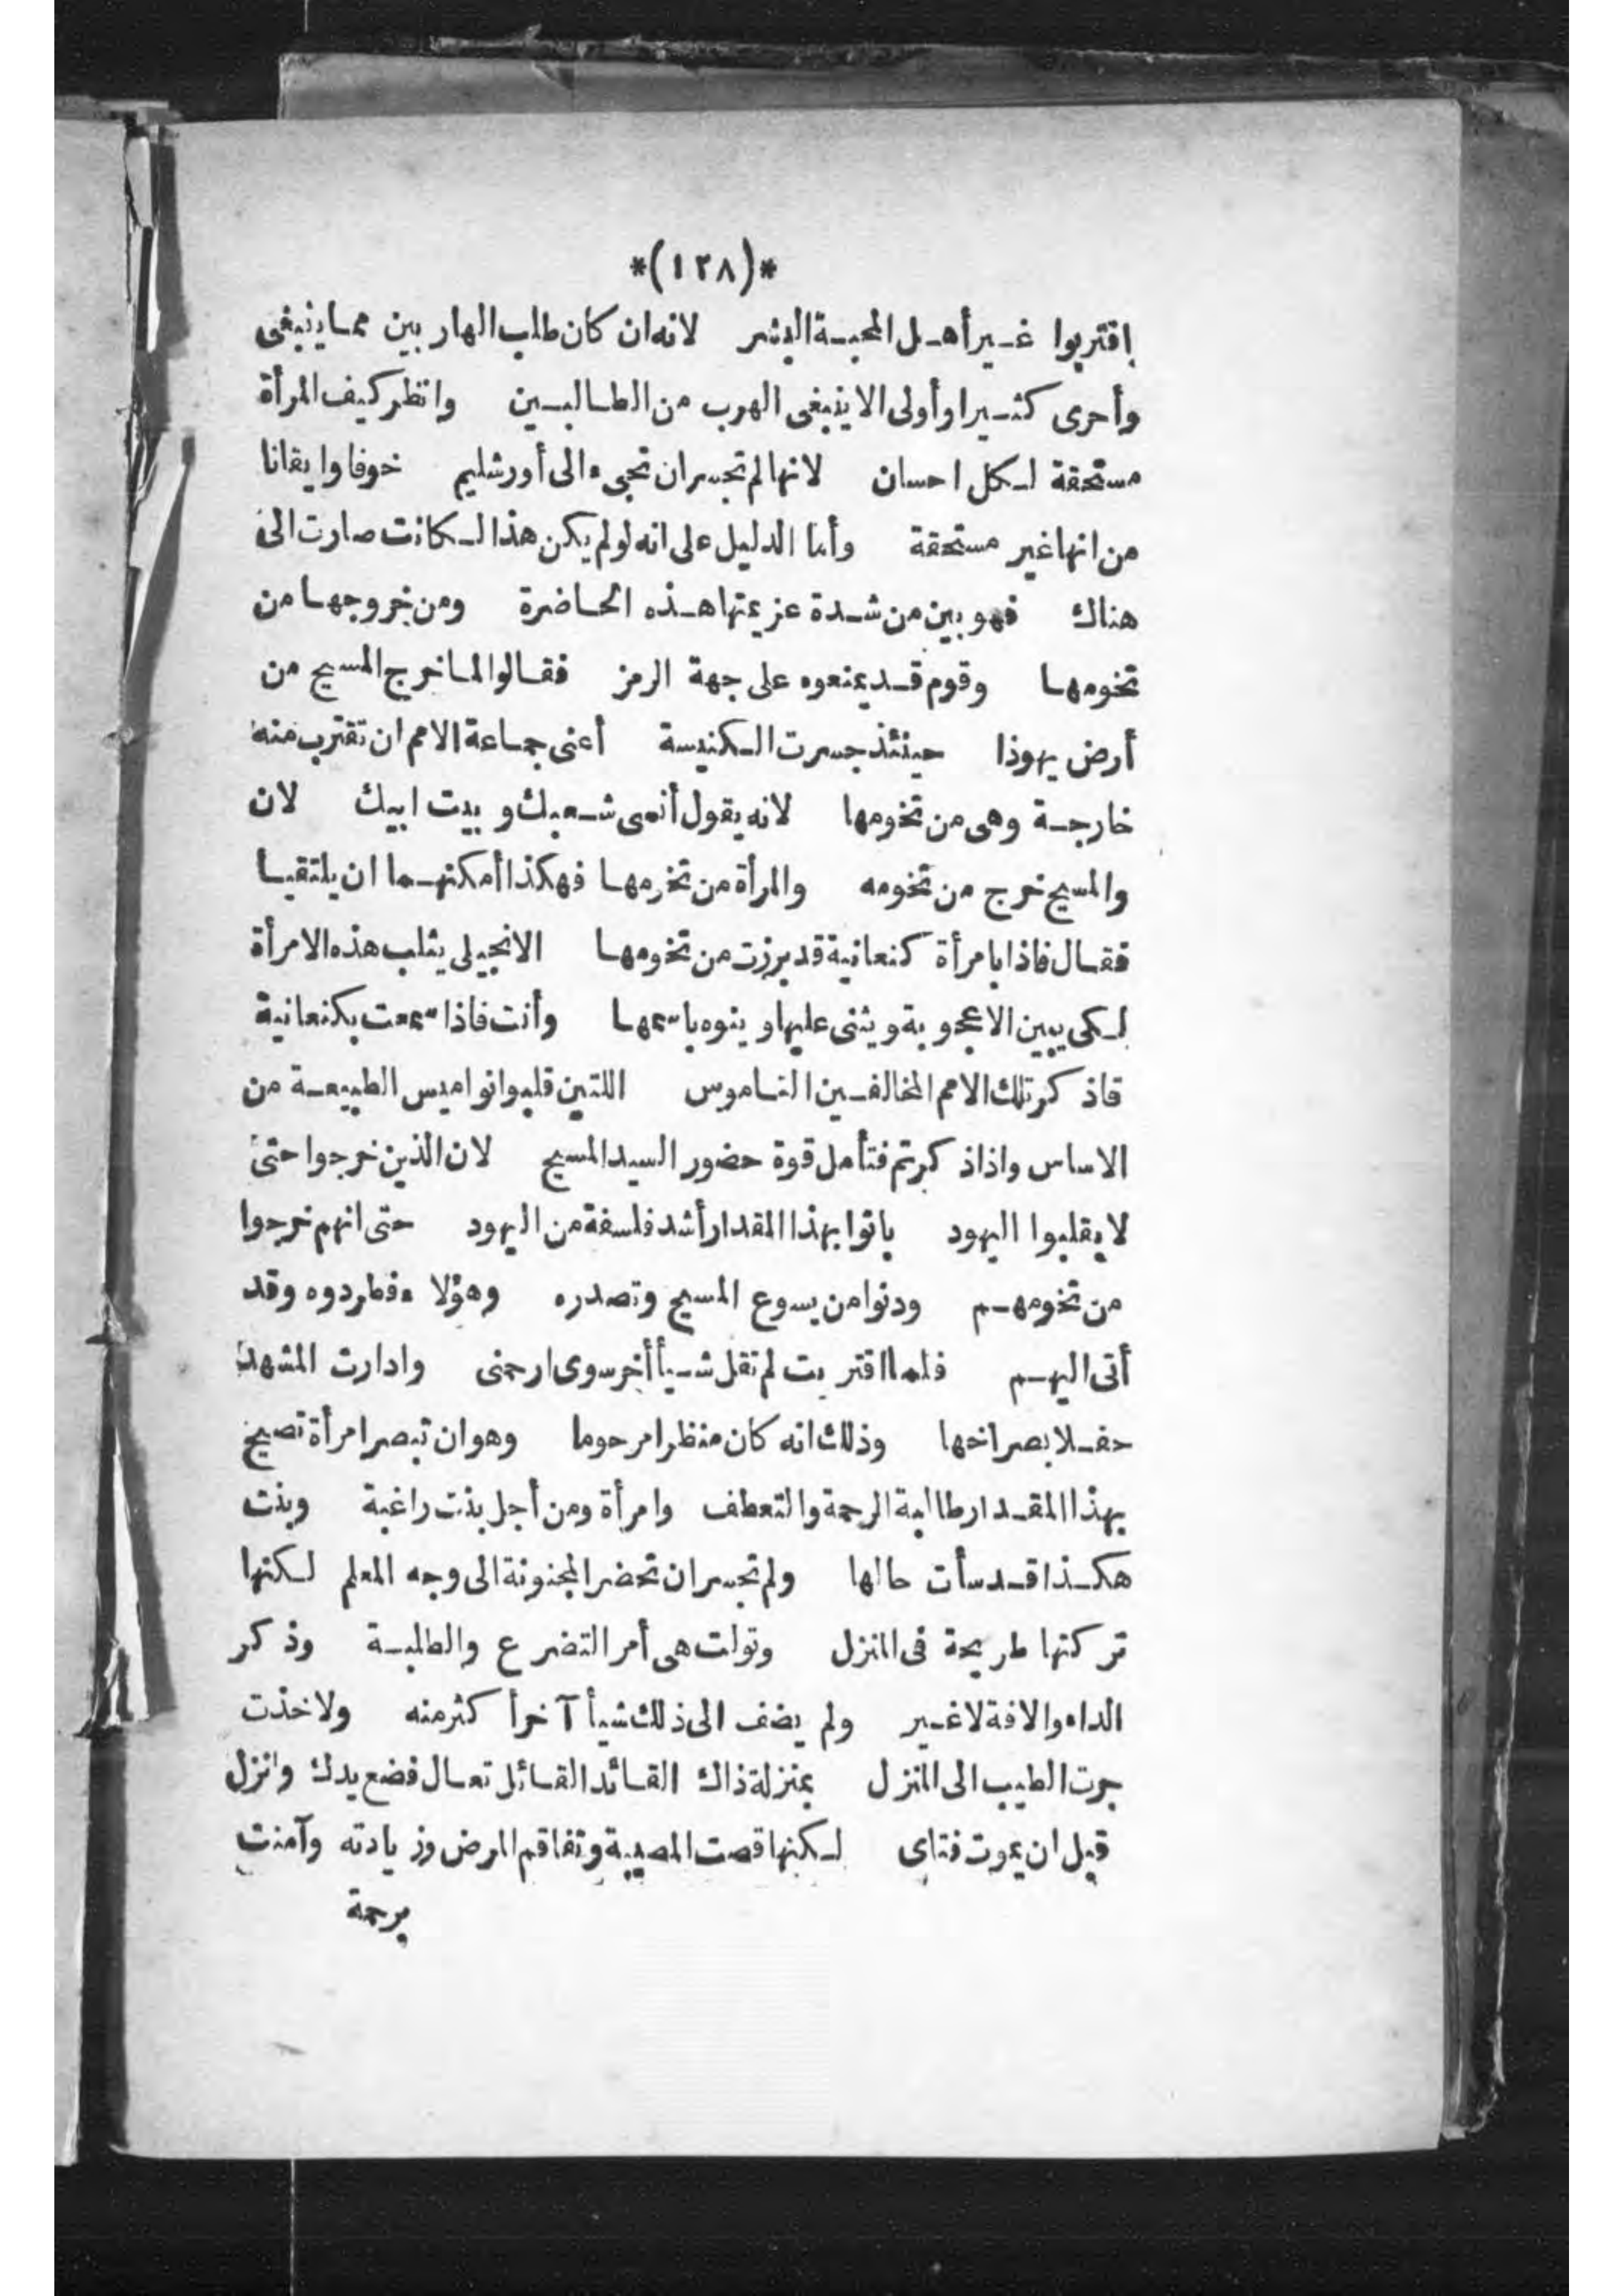 *(١٢٨)*
اقتربوا غير أهل المحبة البشر لانه ان كان طلب الهاربين مما ينبغى
وأحرى كثيرا وأولى الا ينبغى الهرب من الطالبين وانظر كيف المرأة
مستحقة لكل احسان لانها لم تجسران تجىء الى أورشليم خوفا وايقانا
من انها غير مستحقة وأما الدليل على انه لو لم يكن هذا لكانت صارت الى
هناك فهو بين من شدة عزيمتها هذه الحاضرة ومن خروجها من
تخومها وقوم قد يمنعوه على جهة الرمز فقالوا لما خرج المسيح من
أرض يهوذا حينئذ جسرت الكنيسة أعنى جماعة الامم ان تقترب منه
خارجة وهى من تخومها لانه يقول أنسى شعبك وبيت ابيك لان
والمسيح خرج من تخومه والمرأة من تخرمها فهكذا أمكنهما ان يلتقيا
فقال فاذا بامرأة كنعانية قد برزت من تخومها الانجيلى يثلب هذه الامرأة
لكى يبين الاعجوبة ويثنى عليها وينوه باسمها وأنت فاذا سمعت بكنعانية
فاذكر تلك الامم المخالفين الناموس اللتين قلبوا نواميس الطبيعة من
الاساس واذا ذكرتم فتأمل قوة حضور السيد المسيح لان الذين خرجوا حتى
لا يقلبوا اليهود باتوا بهذا المقدار أشد فلسفة من اليهود حتى انهم خرجوا
من تخومهم ودنوا من يسوع المسيح وتصدره وهؤلاء فطردوه وقد
أتى اليهم فلما اقتربت لم تقل شيأ أخر سوى ارحمنى وادارت المشهد
حفلا بصراخها وذلك انه كان منظرا مرحوما وهو ان تبصر امرأة تصيح
بهذا المقدار طالبة الرحمة والتعطف وامرأة ومن أجل بنت راغبة وبنت
هكذا قد سأت حالها ولم تجسران تحضر المجنونة الى وجه المعلم لكنها
تركتها طريحة فى المنزل وتولت هى أمر التضرع والطلبة وذكر
الداء والافة لا غير ولم يضف الى ذلك شيأ آخر أكثر منه ولا خذت
جرت الطبيب الى المنزل بمنزلة ذاك القائد القائل تعال فضع يدك وانزل
قبل ان يموت فتاى لكنها قصت المصيبة وتفاقم المرض وزيادته وآمنت
برحمة